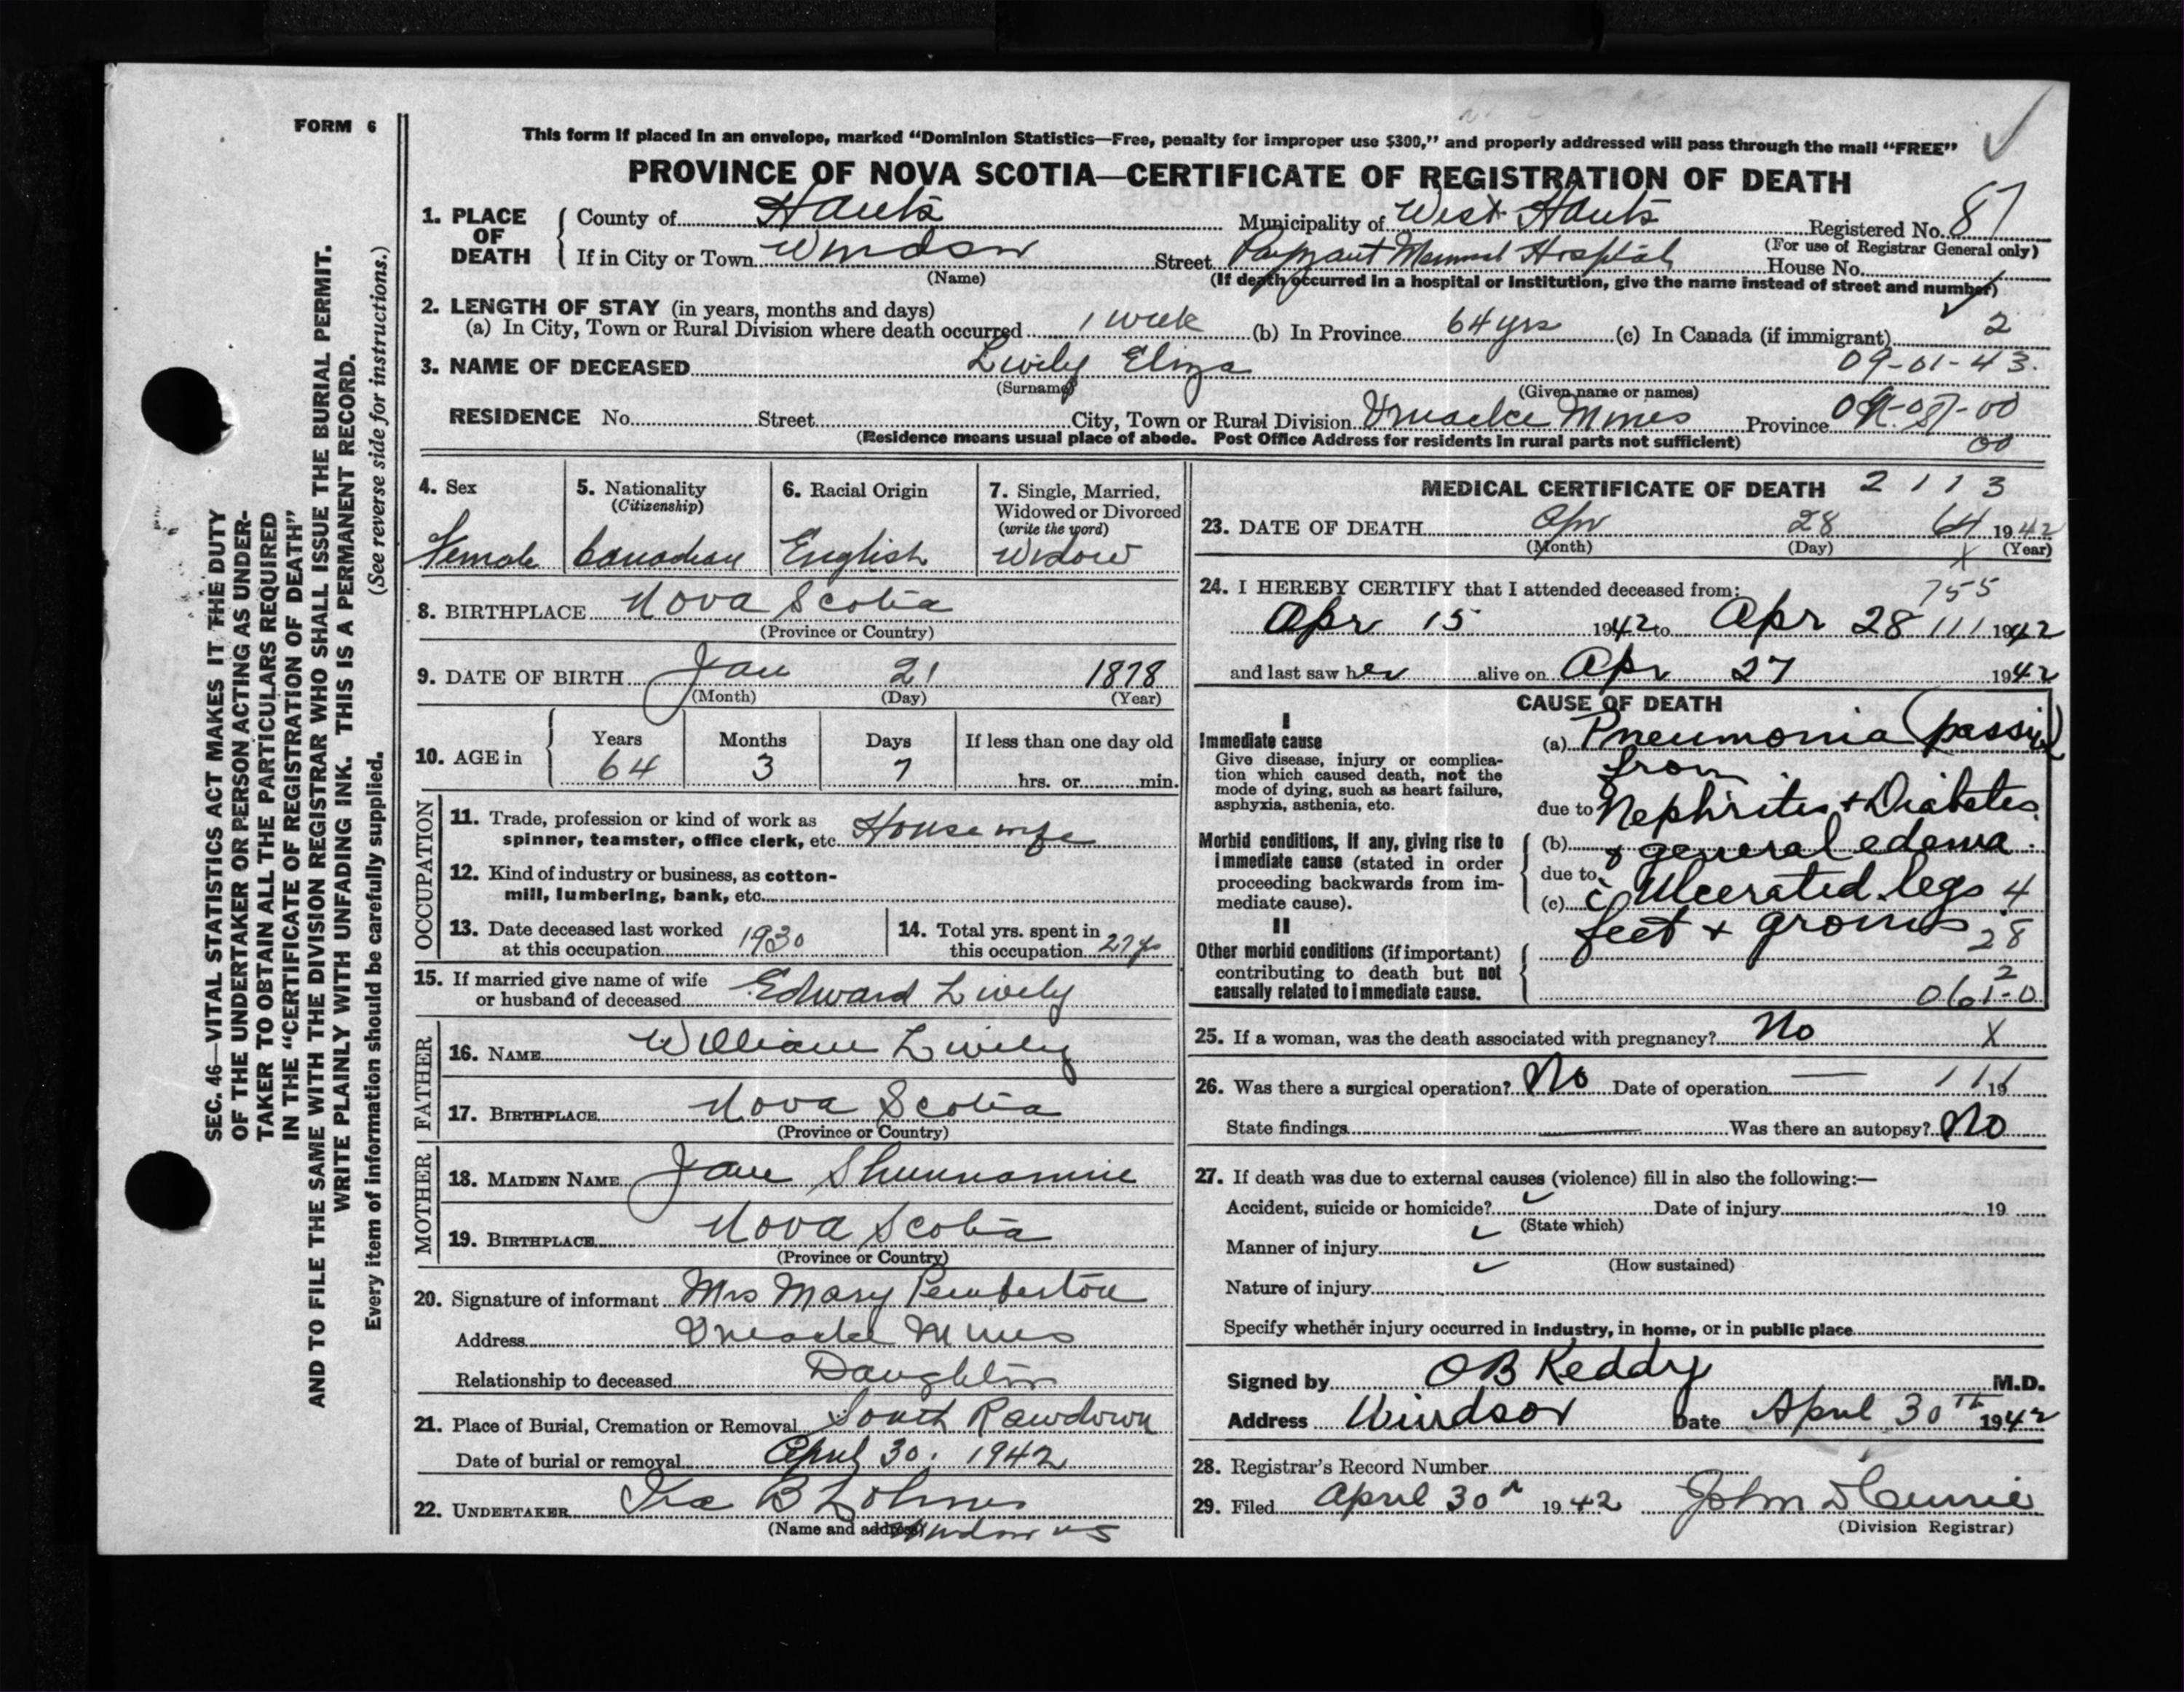 FORM 6
This form if placed in an envelope, marked “Dominion Statistics—Free, penalty for improper use $300,” and properly addressed will pass through the mail “FREE”
PROVINCE OF NOVA SCOTIA—CERTIFICATE OF REGISTRATION OF DEATH
SEC. 46—VITAL STATISTICS ACT MAKES IT THE DUTY
OF THE UNDERTAKER OR PERSON ACTING AS UNDER-
TAKER TO OBTAIN ALL THE PARTICULARS REQUIRED
IN THE “CERTIFICATE OF REGISTRATION OF DEATH”
AND TO FILE THE SAME WITH THE DIVISION REGISTRAR WHO SHALL ISSUE THE BURIAL PERMIT.
WRITE PLAINLY WITH UNFADING INK. THIS IS A PERMANENT RECORD.
Every item of information should be carefully supplied. (See reverse side for instructions.)
1. PLACE OF DEATH
County of Hants Municipality of West Hants Registered No. 87
(For use of Registrar General only)
If in City or Town Windsor Street Payzant Memorial Hospital House No.
(Name) (If death occurred in a hospital or institution, give the name instead of street and number)
2. LENGTH OF STAY (in years, months and days)
(a) In City, Town or Rural Division where death occurred 1 week (b) In Province 64 yrs (c) In Canada (if immigrant) 2
3. NAME OF DECEASED Lively Eliza 09-01-43.
(Surname) (Given name or names)
RESIDENCE No. Street City, Town or Rural Division Uniacke Mines Province
(Residence means usual place of abode. Post Office Address for residents in rural parts not sufficient) 00
4. Sex Female
5. Nationality (Citizenship) Canadian
6. Racial Origin English
7. Single, Married, Widowed or Divorced (write the word) Widow
8. BIRTHPLACE Nova Scotia
(Province or Country)
9. DATE OF BIRTH Jan 21 1878
(Month) (Day) (Year)
10. AGE in Years 64 Months 3 Days 7 If less than one day old hrs. or min.
OCCUPATION
11. Trade, profession or kind of work as
spinner, teamster, office clerk, etc. Housewife
12. Kind of industry or business, as cotton-
mill, lumbering, bank, etc.
13. Date deceased last worked
at this occupation 1930
14. Total yrs. spent in
this occupation
15. If married give name of wife
or husband of deceased Edward Lively
FATHER
16. NAME William Lively
17. BIRTHPLACE Nova Scotia
(Province or Country)
MOTHER
18. MAIDEN NAME Jane
19. BIRTHPLACE Nova Scotia
(Province or Country)
20. Signature of informant Mrs Mary Pemberton
Address Uniacke Mines
Relationship to deceased Daughter
21. Place of Burial, Cremation or Removal South Rawdown
Date of burial or removal April 30, 1942
22. UNDERTAKER Ira B Lohnes
(Name and address) Windsor NS
MEDICAL CERTIFICATE OF DEATH 2 1 1 3
23. DATE OF DEATH Apr 28 64 1942
(Month) (Day) X (Year)
24. I HEREBY CERTIFY that I attended deceased from: 755
Apr 15 1942 to Apr 28 111 1942
and last saw her alive on Apr 27 1942
CAUSE OF DEATH
I
Immediate cause
Give disease, injury or complica-
tion which caused death, not the
mode of dying, such as heart failure,
asphyxia, asthenia, etc.
(a) Pneumonia (passive)
from
due to Nephritis + Diabetes
Morbid conditions, if any, giving rise to
immediate cause (stated in order
proceeding backwards from im-
mediate cause).
(b) & general edema.
due to
(c) c̄ Ulcerated legs 4
feet + groins 28
II
Other morbid conditions (if important)
contributing to death but not
causally related to immediate cause.
2
061-0
25. If a woman, was the death associated with pregnancy? No X
26. Was there a surgical operation? No Date of operation — 111 19
State findings — Was there an autopsy? No
27. If death was due to external causes (violence) fill in also the following:—
Accident, suicide or homicide? Date of injury 19
(State which)
Manner of injury
(How sustained)
Nature of injury
Specify whether injury occurred in industry, in home, or in public place
Signed by OB Keddy M.D.
Address Windsor Date April 30th 1942
28. Registrar’s Record Number
29. Filed April 30th 1942 John D Currie
(Division Registrar)